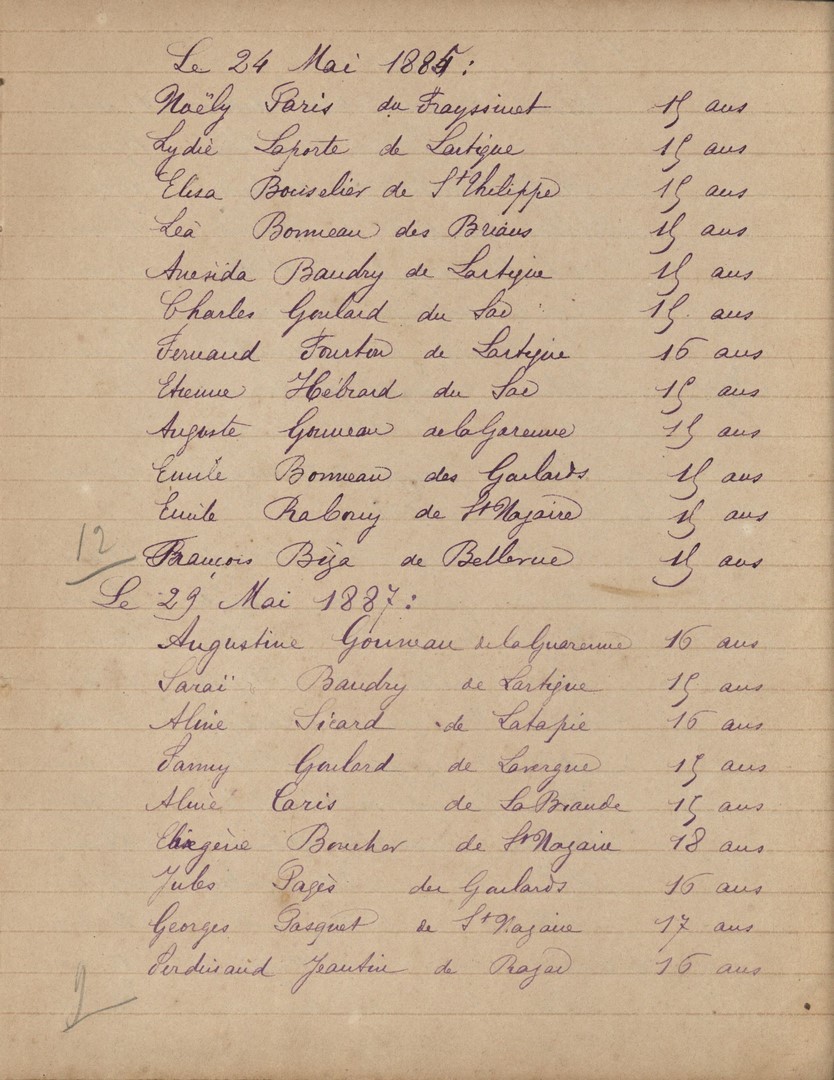 Le 24 Mai 1885:
Noëly Paris du Frayssinet 15 ans
Lydie Laporte de Lartigue 15 ans
Elisa Bouselier de St Philippe 15 ans
Léa Bonneau des Brians 15 ans
Anésida Baudry de Lartigue 15 ans
Charles Goulard du Sac 15 ans
Fernand Fourton de Lartigue 16 ans
Etienne Hébrard du Sac 15 ans
Auguste Gouneau de la Garenne 15 ans
Emile Bonneau des Goulards 15 ans
Emile Rabouy de St Nazaire 15 ans
12 François Biza de Bellevue 15 ans
Le 29 Mai 1887:
Augustine Gouneau de la Guarenne 16 ans
Saraï Baudry de Lartigue 15 ans
Aline Sicard de Latapie 16 ans
Fanny Goulard de Lavergne 15 ans
Aline Paris de La Brande 15 ans
Boucher de St Nazaire 18 ans
Jules Pagès des Goulards 16 ans
Georges Pasquet de St Nazaire 17 ans
Ferdinand Jeantin de Razac 16 ans
9